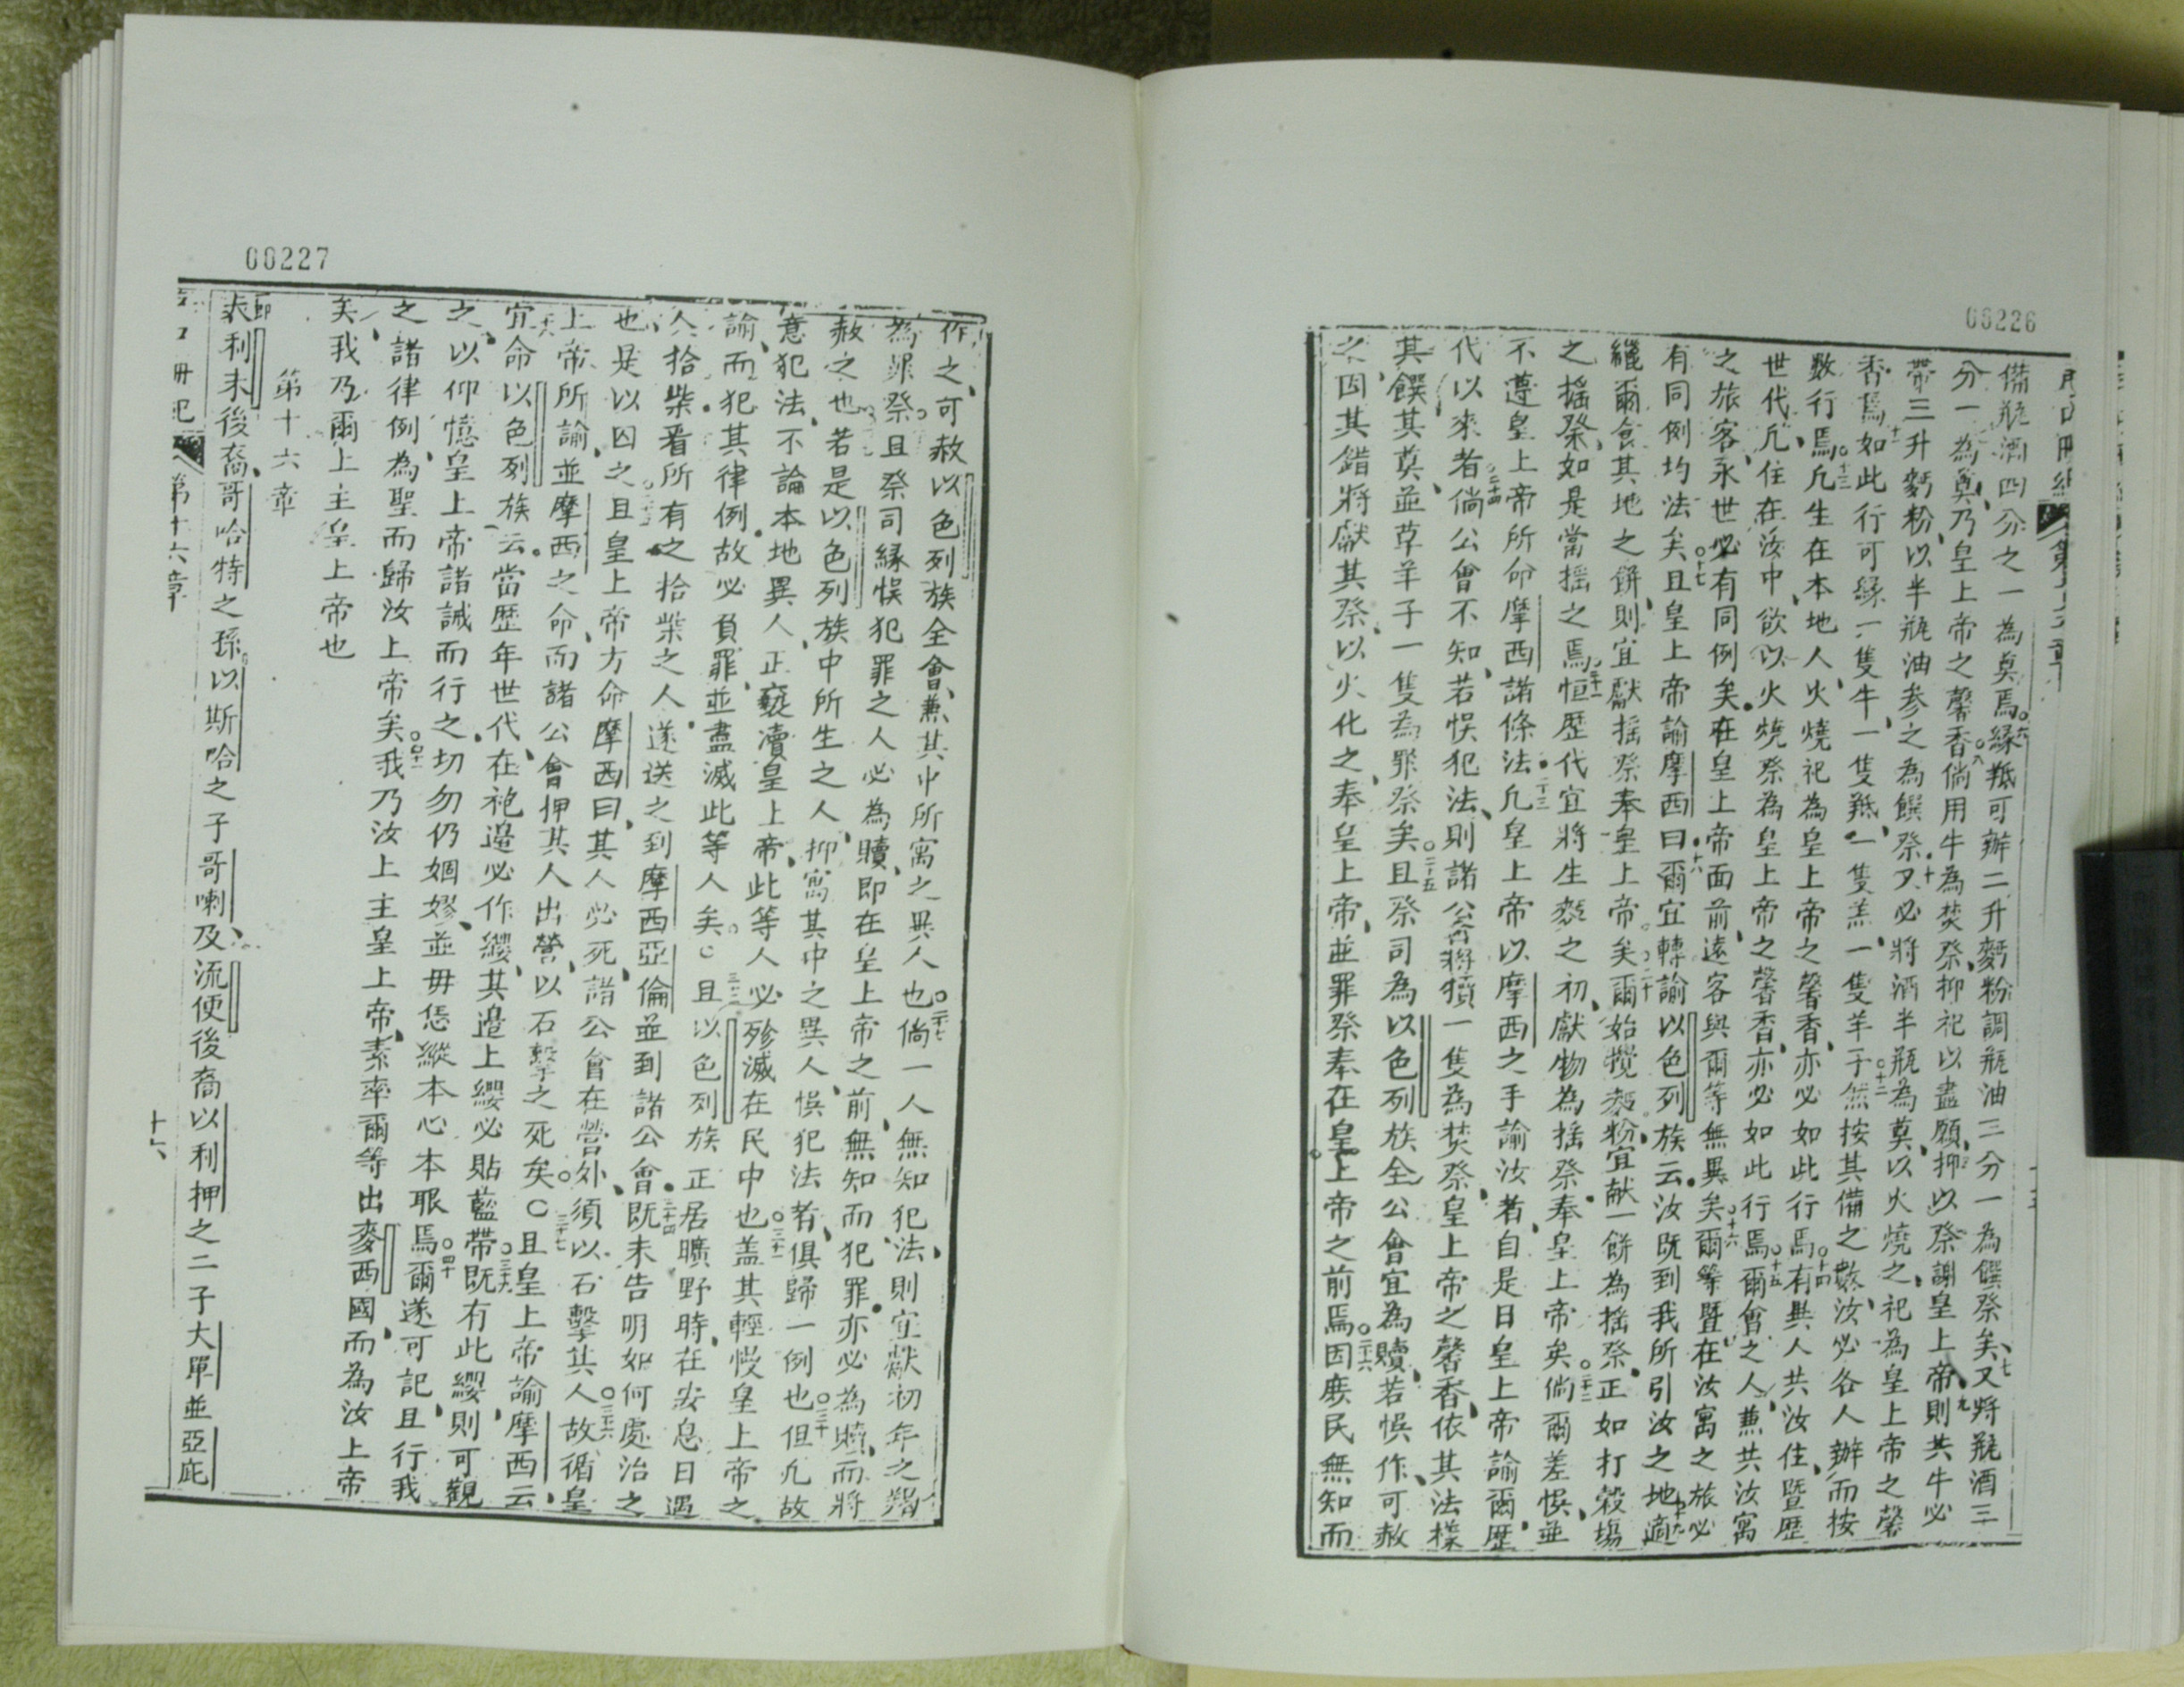 00226
備瓶酒四分之一為奠焉○六緣羝可辦二升麪粉調瓶油三分一為饌祭矣七又將瓶酒三
分一為奠乃皇上帝之馨香○八倘用牛為焚祭抑祀以盡願抑以祭謝皇上帝九則共牛必
帶三升麪粉以半瓶油參之為饌祭十又必將酒半瓶為奠以火燒之祀為皇上帝之馨
香焉十一如此行可緣一隻牛一隻羝一隻羔一隻羊子○十二然按其備之數汝必各人辦而按
數行焉○十三凡生在本地人火燒祀為皇上帝之馨香亦必如此行焉○十四有異人共汝住暨歷
世代凡住在汝中欲以火燒祭為皇上帝之馨香亦必如此行焉○十五爾會之人兼共汝寓
之旅客永世必有同例矣在皇上帝面前遠客與爾等無異矣○十六爾等暨在汝寓之旅必
有同例均法矣○十七且皇上帝諭摩西曰十八爾宜轉諭以色列族云汝既到我所引汝之地十九適
纔爾食其地之餅則宜獻搖祭奉皇上帝矣○二十爾始攪麥粉宜献一餅為搖祭正如打穀場
之搖祭如是當搖之焉○二十一恒歷代宜將生麪之初獻物為搖祭奉皇上帝矣○二十二倘爾差悞並
不遵皇上帝所命摩西諸條法二十三凡皇上帝以摩西之手諭汝者自是日皇上帝諭爾歷
代以來者○二十四倘公會不知若悞犯法則諸公會將犢一隻為焚祭皇上帝之馨香依其法樣
其饌其奠並草羊子一隻為罪祭矣○二十五且祭司為以色列族全公會宜為贖若悞作可赦
之因其錯將獻其祭以火化之奉皇上帝並罪祭奉在皇上帝之前焉○二十六因庶民無知而
00227
作之可赦以色列族全會兼其中所寓之異人也○二十七倘一人無知犯法則宜獻初年之羯
為罪祭且祭司緣悞犯罪之人必為贖即在皇上帝之前無知而犯罪亦必為贖而將
赦之也若是以色列族中所生之人抑寓其中之異人悞犯法者俱歸一例也○三十但凡故
意犯法不論本地異人正褻瀆皇上帝此等人必殄滅在民中也○三十一蓋其輕慢皇上帝之
諭而犯其律例故必負罪並盡滅此等人矣○三十二且以色列族正居曠野時在安息日遇
人拾柴看所有之拾柴之人遂送之到摩西亞倫並到諸公會三十四既未告明如何處治之
也是以囚之且皇上帝方命摩西曰其人必死諸公會在營外須以石擊其人○三十六故循皇
上帝所諭並摩西之命而諸公會押其人出營以石擊之死矣○三十七且皇上帝諭摩西云
宜命以色列族云當歷年世代在袍邊必作纓其邊上纓必貼藍帶○三十九既有此纓則可觀
之以仰憶皇上帝諸誡而行之切勿仍婟嫪並毋恁縱本心本眼焉○四十爾遂可記且行我
之諸律例為聖而歸汝上帝矣○四十一我乃汝上主皇上帝素率爾等出麥西國而為汝上帝
矣我乃爾上主皇上帝也
第十六章
即利未後裔哥哈特之孫以斯哈之子哥喇及流便後裔以利押之二子大單並亞庇
第十六章